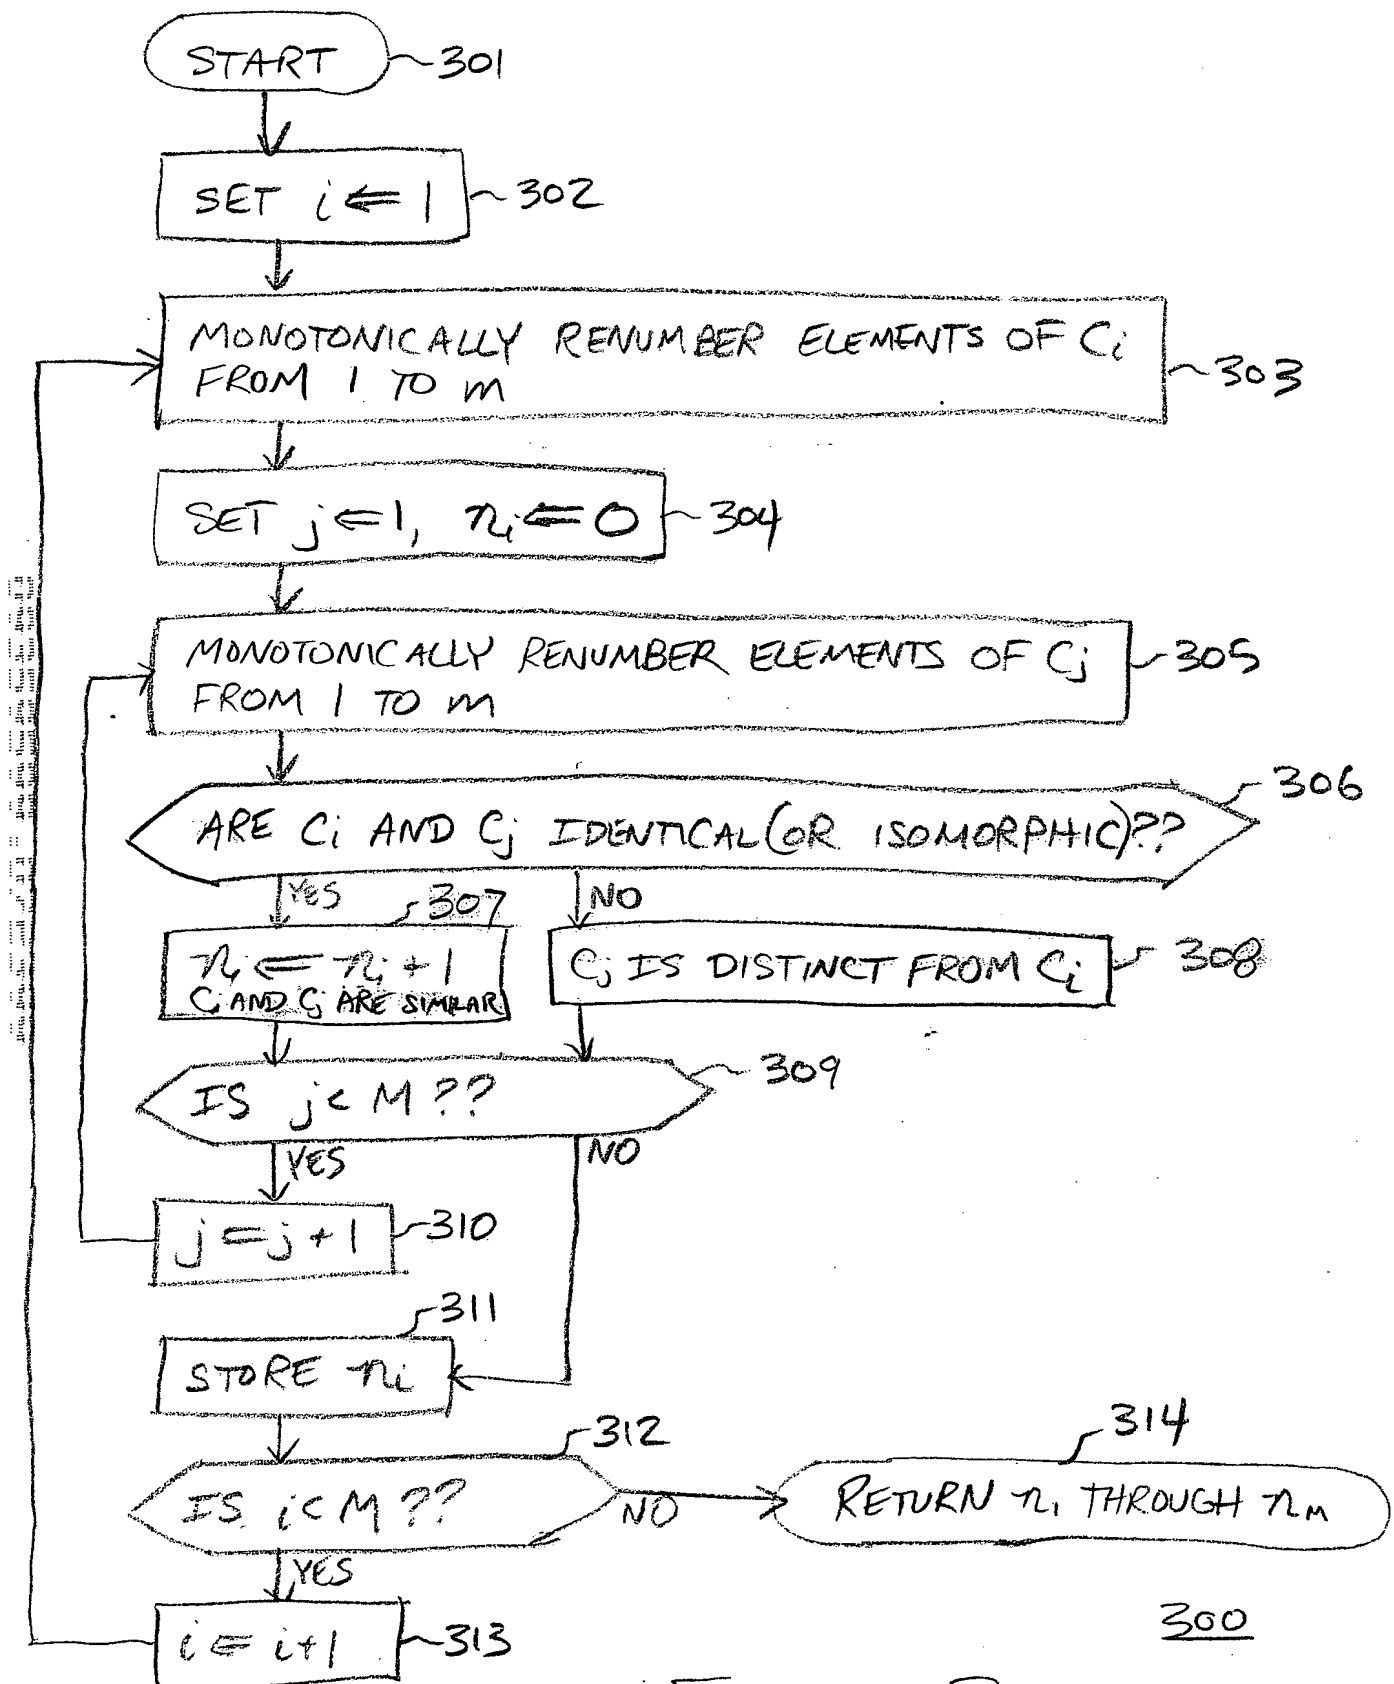 START 301
SET i ⇐ 1 302
MONOTONICALLY RENUMBER ELEMENTS OF Ci
FROM 1 TO m 303
SET j ⇐ 1, ni ⇐ 0 304
MONOTONICALLY RENUMBER ELEMENTS OF Cj 305
FROM 1 TO m
306
ARE Ci AND Cj IDENTICAL (OR ISOMORPHIC)??
YES NO
307
ni ⇐ ni + 1
Ci AND Cj ARE SIMILAR
Cj IS DISTINCT FROM Ci 308
IS j < M ?? 309
YES NO
j ⇐ j + 1 310
311
STORE ni
312
IS i < M ??
NO
YES
314
RETURN n1 THROUGH nM
i ⇐ i+1 313
300